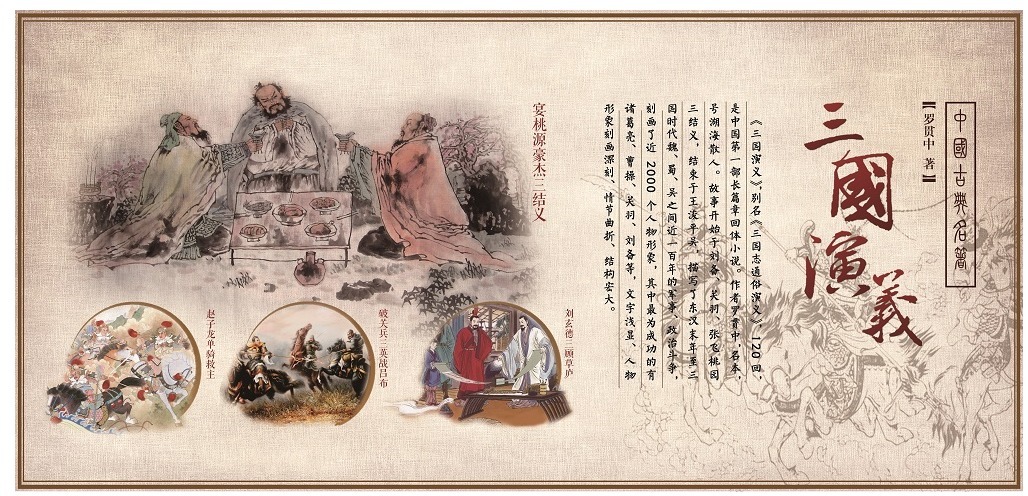 中國古典名著
【罗贯中 著】
三國演義
《三国演义》，别名《三国志通俗演义》，120回，
是中国第一部长篇章回体小说。作者罗贯中，名本，
号湖海散人。故事开始于刘备、关羽、张飞桃园
三结义，结束于王浚平吴，描写了东汉末年至三
国时代魏、蜀、吴之间近一百年的军事、政治斗争，
刻画了近 2000 个人物形象，其中最为成功的有
诸葛亮、曹操、关羽、刘备等，文字浅显、人物
形象刻画深刻、情节曲折、结构宏大。
宴桃源豪杰三结义
刘玄德三顾草庐
破关兵三英战吕布
赵子龙单骑救主